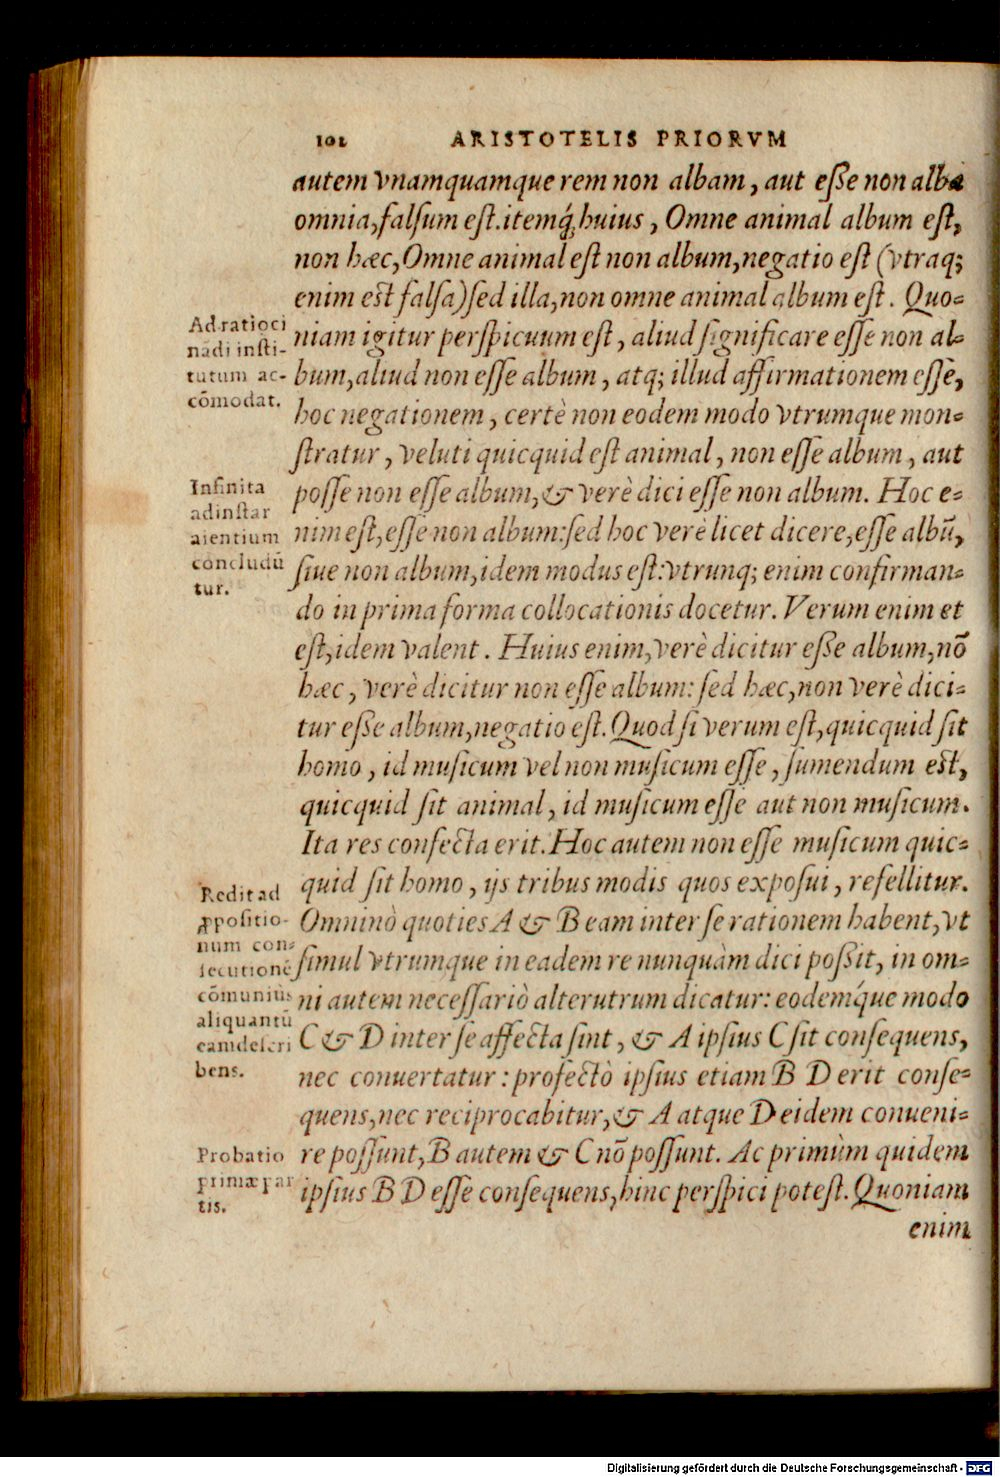 102 ARISTOTELIS PRIORVM
autem vnamquamque rem non albam, aut eſſe non alba
omnia, falſum eſt. itemq́; huius, Omne animal album eſt,
non hæc, Omne animal eſt non album, negatio eſt (vtraq;
enim eſt falſa) ſed illa, non omne animal album eſt. Quo-
niam igitur perſpicuum eſt, aliud ſignificare eſſe non al-
bum, aliud non eſſe album, atq; illud affirmationem eſſe,
hoc negationem, certè non eodem modo vtrumque mon-
ſtratur, veluti quicquid eſt animal, non eſſe album, aut
poſſe non eſſe album, & verè dici eſſe non album. Hoc e-
nim eſt, eſſe non album: ſed hoc verè licet dicere, eſſe albū,
ſiue non album, idem modus eſt: vtrunq; enim confirman-
do in prima forma collocationis docetur. Verum enim et
eſt, idem valent. Huius enim, verè dicitur eſſe album, nō
hæc, verè dicitur non eſſe album: ſed hæc, non verè dici-
tur eſſe album, negatio eſt. Quod ſi verum eſt, quicquid ſit
homo, id muſicum vel non muſicum eſſe, ſumendum eſt,
quicquid ſit animal, id muſicum eſſe aut non muſicum.
Ita res confecta erit. Hoc autem non eſſe muſicum quic-
quid ſit homo, ijs tribus modis quos expoſui, refellitur.
Omninò quoties A & B eam inter ſe rationem habent, vt
ſimul vtrumque in eadem re nunquàm dici poſſit, in om-
ni autem neceſſariò alterutrum dicatur: eodemq́ue modo
C & D inter ſe affecta ſint, & A ipſius C ſit conſequens,
nec conuertatur: profectò ipſius etiam B D erit conſe-
quens, nec reciprocabitur, & A atque D eidem conueni-
re poſſunt, B autem & C nō poſſunt. Ac primùm quidem
ipſius B D eſſe conſequens, hinc perſpici poteſt. Quoniam
enim
Ad ratioci
nādi inſti-
tutum ac-
cōmodat.
Infinita
ad inſtar
aientium
concludū
tur.
Redit ad
ꝓpoſitio-
num con-
ſecutionē
cōmuniùs
aliquantū
eam deſcri
bens.
Probatio
primæ par
tis.
Digitalisierung gefördert durch die Deutsche Forschungsgemeinschaft - DFG